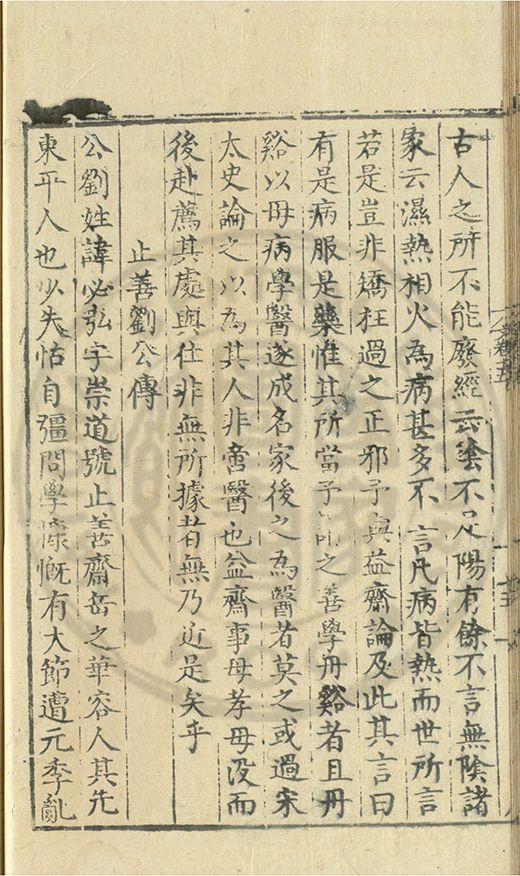 古人之所不能廢經云陰不足陽有餘不言無陰諸
家云濕熱相火為病甚多不言凡病皆熱而世所言
若是豈非矯枉過之正邪予與益齋論及此其言曰
有是病服是藥惟其所當予之善學丹谿者且丹
谿以母病學醫遂成名家後之為醫者莫之或過宋
太史論之以為其人非啻醫也益齋事母孝母沒而
後赴薦其處與仕非無所據者無乃近是矣乎
止善劉公傳
公劉姓諱必弘字崇道號止善齋岳之華容人其先
東平人也少失怙自彊問學慷慨有大節遭元季亂